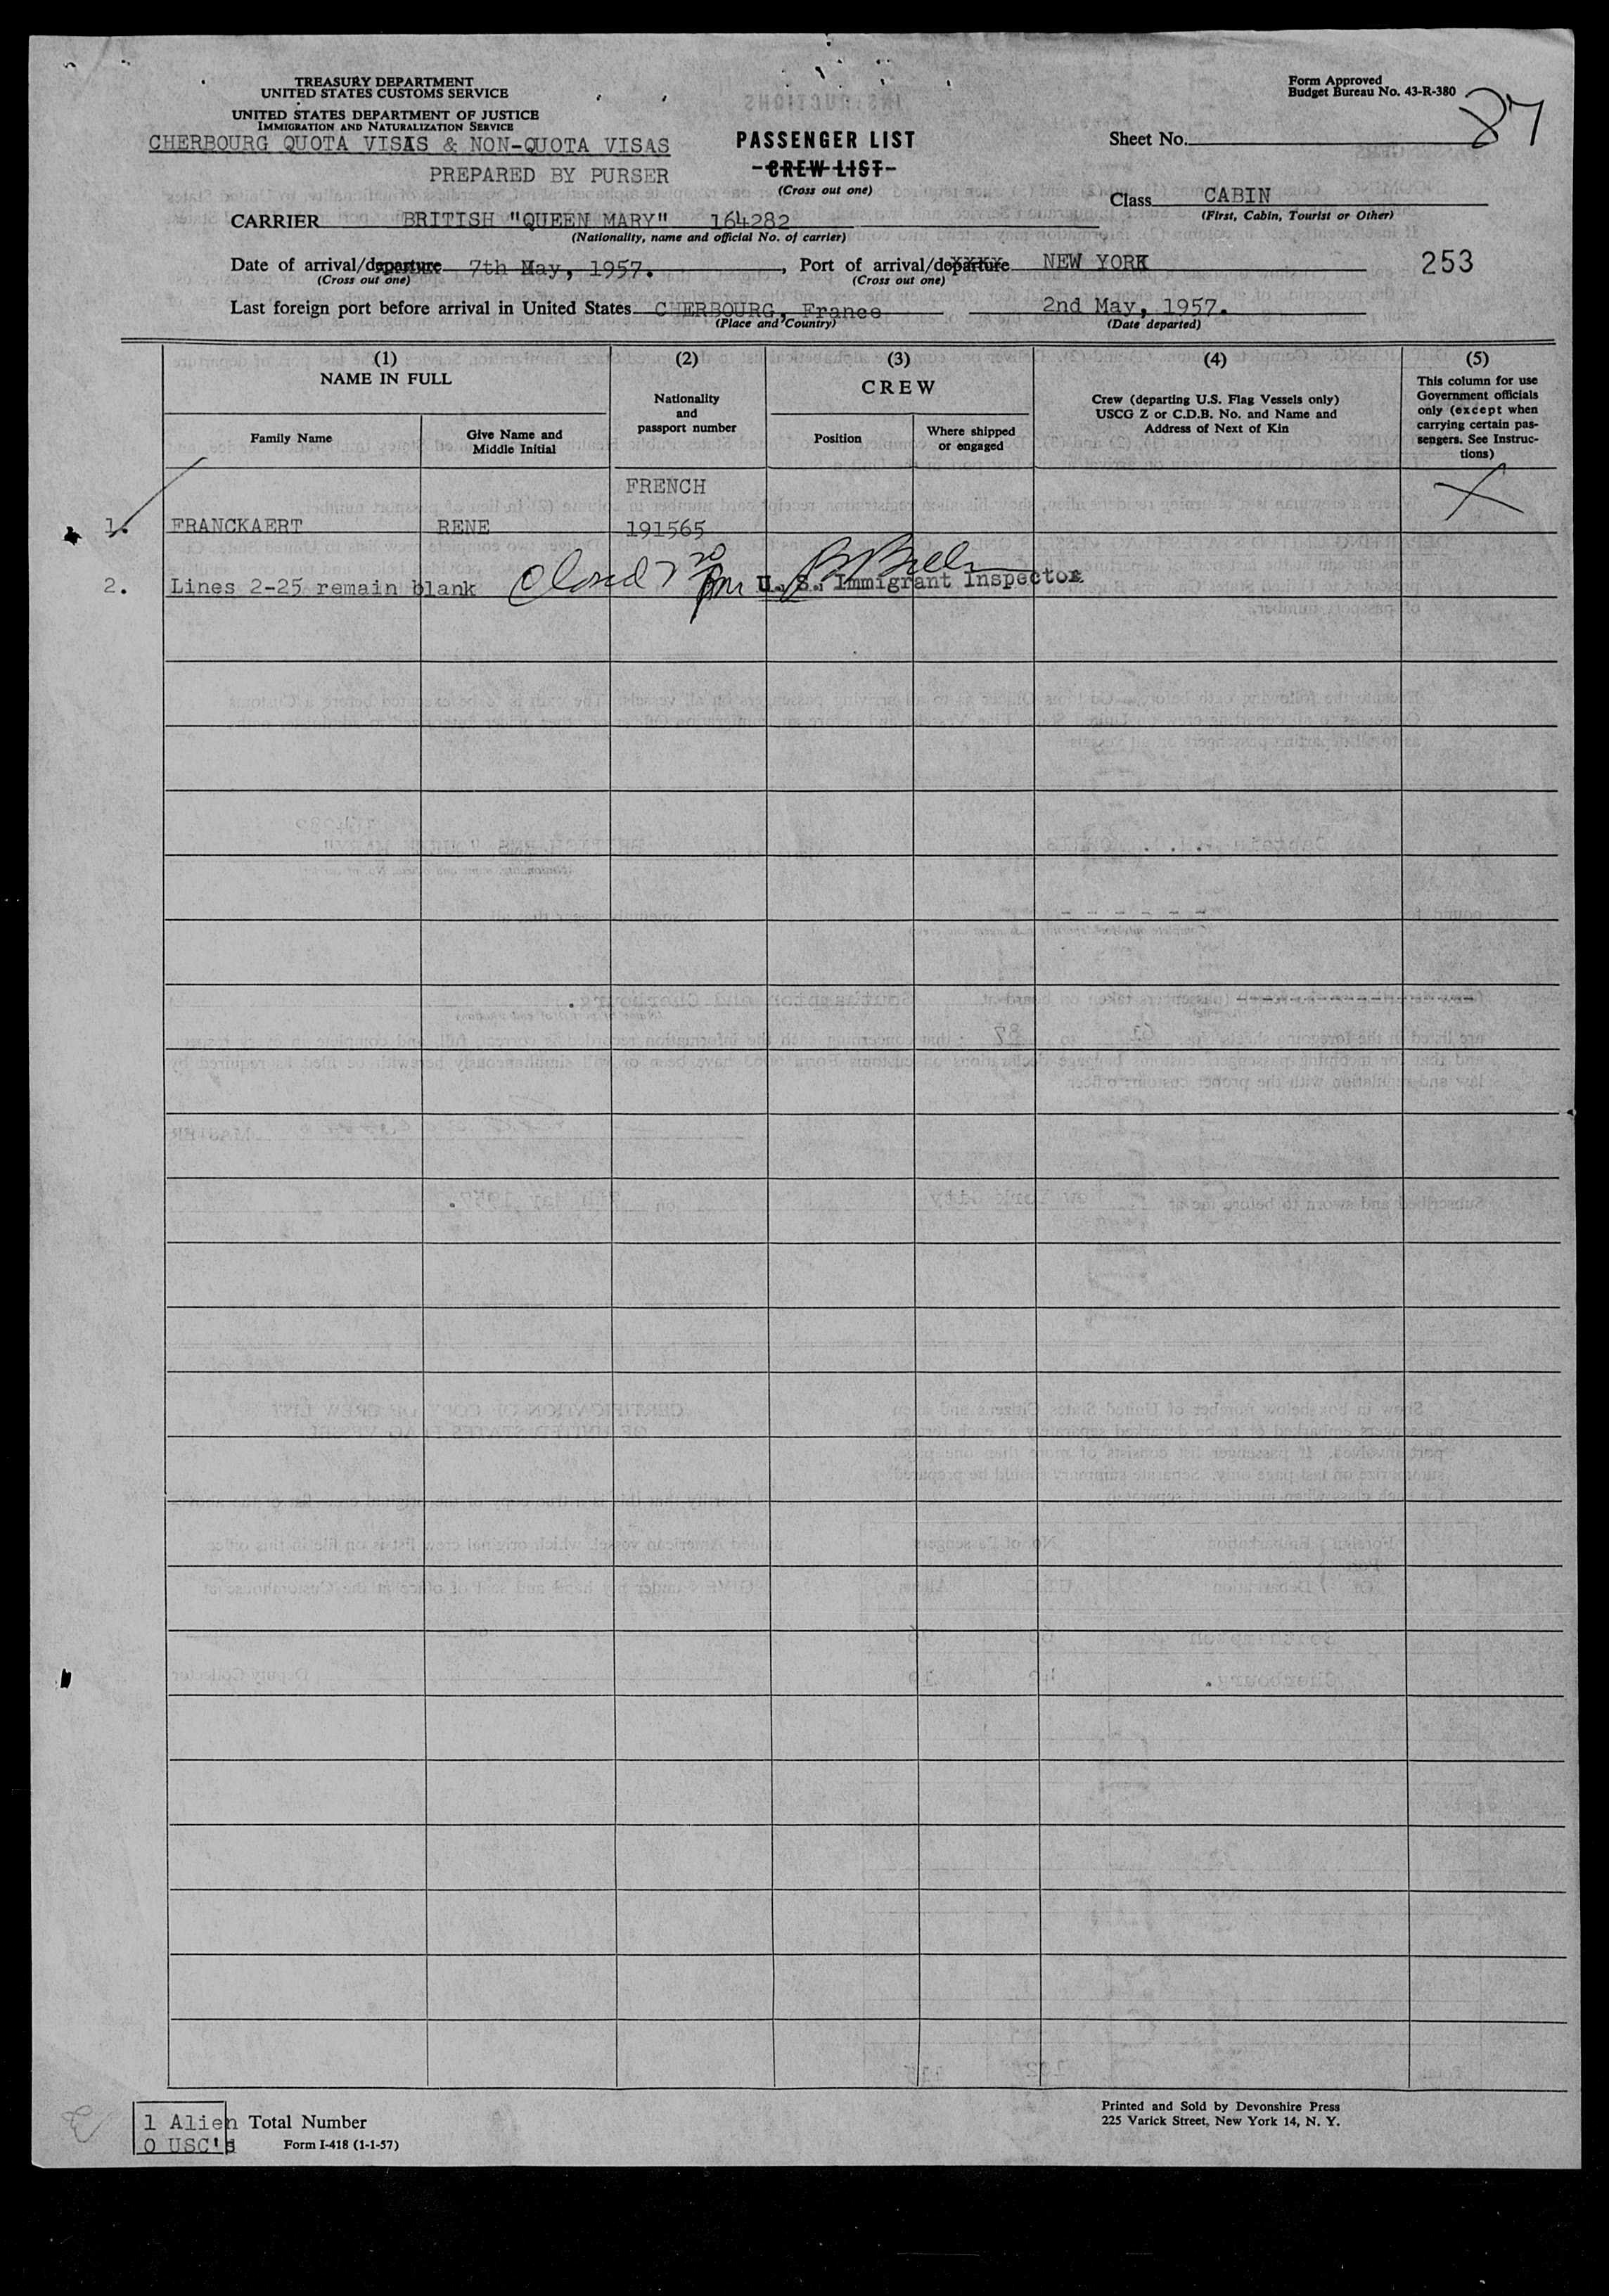 TREASURY DEPARTMENT
UNITED STATES CUSTOMS SERVICE
UNITED STATES DEPARTMENT OF JUSTICE
IMMIGRATION AND NATURALIZATION SERVICE
CHERBOURG QUOTA VISAS & NON-QUOTA VISAS
PREPARED BY PURSER
PASSENGER LIST
CREW LIST
(Cross out one)
Form Approved
Budget Bureau No. 43-R-380
Sheet No. 87
Class CABIN
(First, Cabin, Tourist or Other)
CARRIER BRITISH "QUEEN MARY" 164282
(Nationality, name and official No. of carrier)
Date of arrival/departure 7th May, 1957. , Port of arrival/departure NEW YORK
(Cross out one) (Cross out one)
253
Last foreign port before arrival in United States CHERBOURG, France 2nd May, 1957.
(Place and Country) (Date departed)
(1) (2) (3) (4) (5)
NAME IN FULL
Family Name
Give Name and
Middle Initial
Nationality
and
passport number
CREW
Position
Where shipped
or engaged
Crew (departing U.S. Flag Vessels only)
USCG Z or C.D.B. No. and Name and
Address of Next of Kin
This column for use
Government officials
only (except when
carrying certain pas-
sengers. See Instruc-
tions)
FRENCH X
1. FRANCKAERT RENE 191565
2. Lines 2-25 remain blank Closed U. S. Immigrant Inspector
1 Alien Total Number
0 USC's Form I-418 (1-1-57)
Printed and Sold by Devonshire Press
225 Varick Street, New York 14, N. Y.